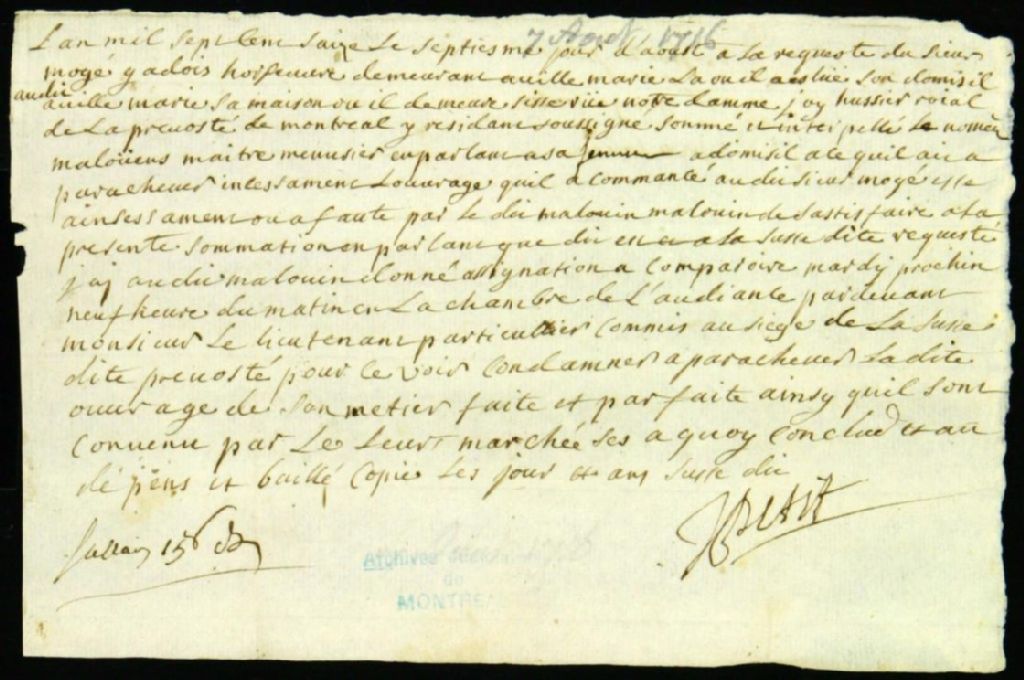 7 Aout 1716
L an mil sept cent saize Le septiesme jour d aoust a La requeste du sieur
mogé y adois demeurant a ville marie La ou il a eslue son domisil
audit
a ville marie sa maison ou il demeure sisse rüe notre damme j ay hussier roial
de La preuosté de montreal y residant soussigné sommé et interpellé Le nommé
malouins maitre menusier en parlant a sa femme a domisil a ce quil ait a
paracheuer incessament Louurage quil a commanté au du sieur mogé esse
ainsessament ou a faute par Le dit malouin malouin de sastisfaire a La
presente sommation en parlant que dit est et a La susse dite requeste
j ay au dit malouin donné assignation a comparoire mardy prochin
neuf heure du matin en La chambre de L audiante pardeuant
monsieur Le lieutenant particullier commis au siege de La susse
dite preuosté pour ce voir condamner a paracheuer La dite
ouurage de son metier faite et parfaite ainsy quil sont
conuenu par Le Leurs marchée ses a quoy conclud et au
dépens et baillé copie Les jour et ans susse dit
Sallair 15s
Archives
de
MONTREAL